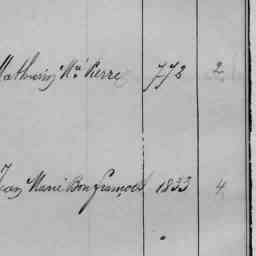 Mathurin Mie Pierre 772 2
Jean Marie Bon françois 1833 4